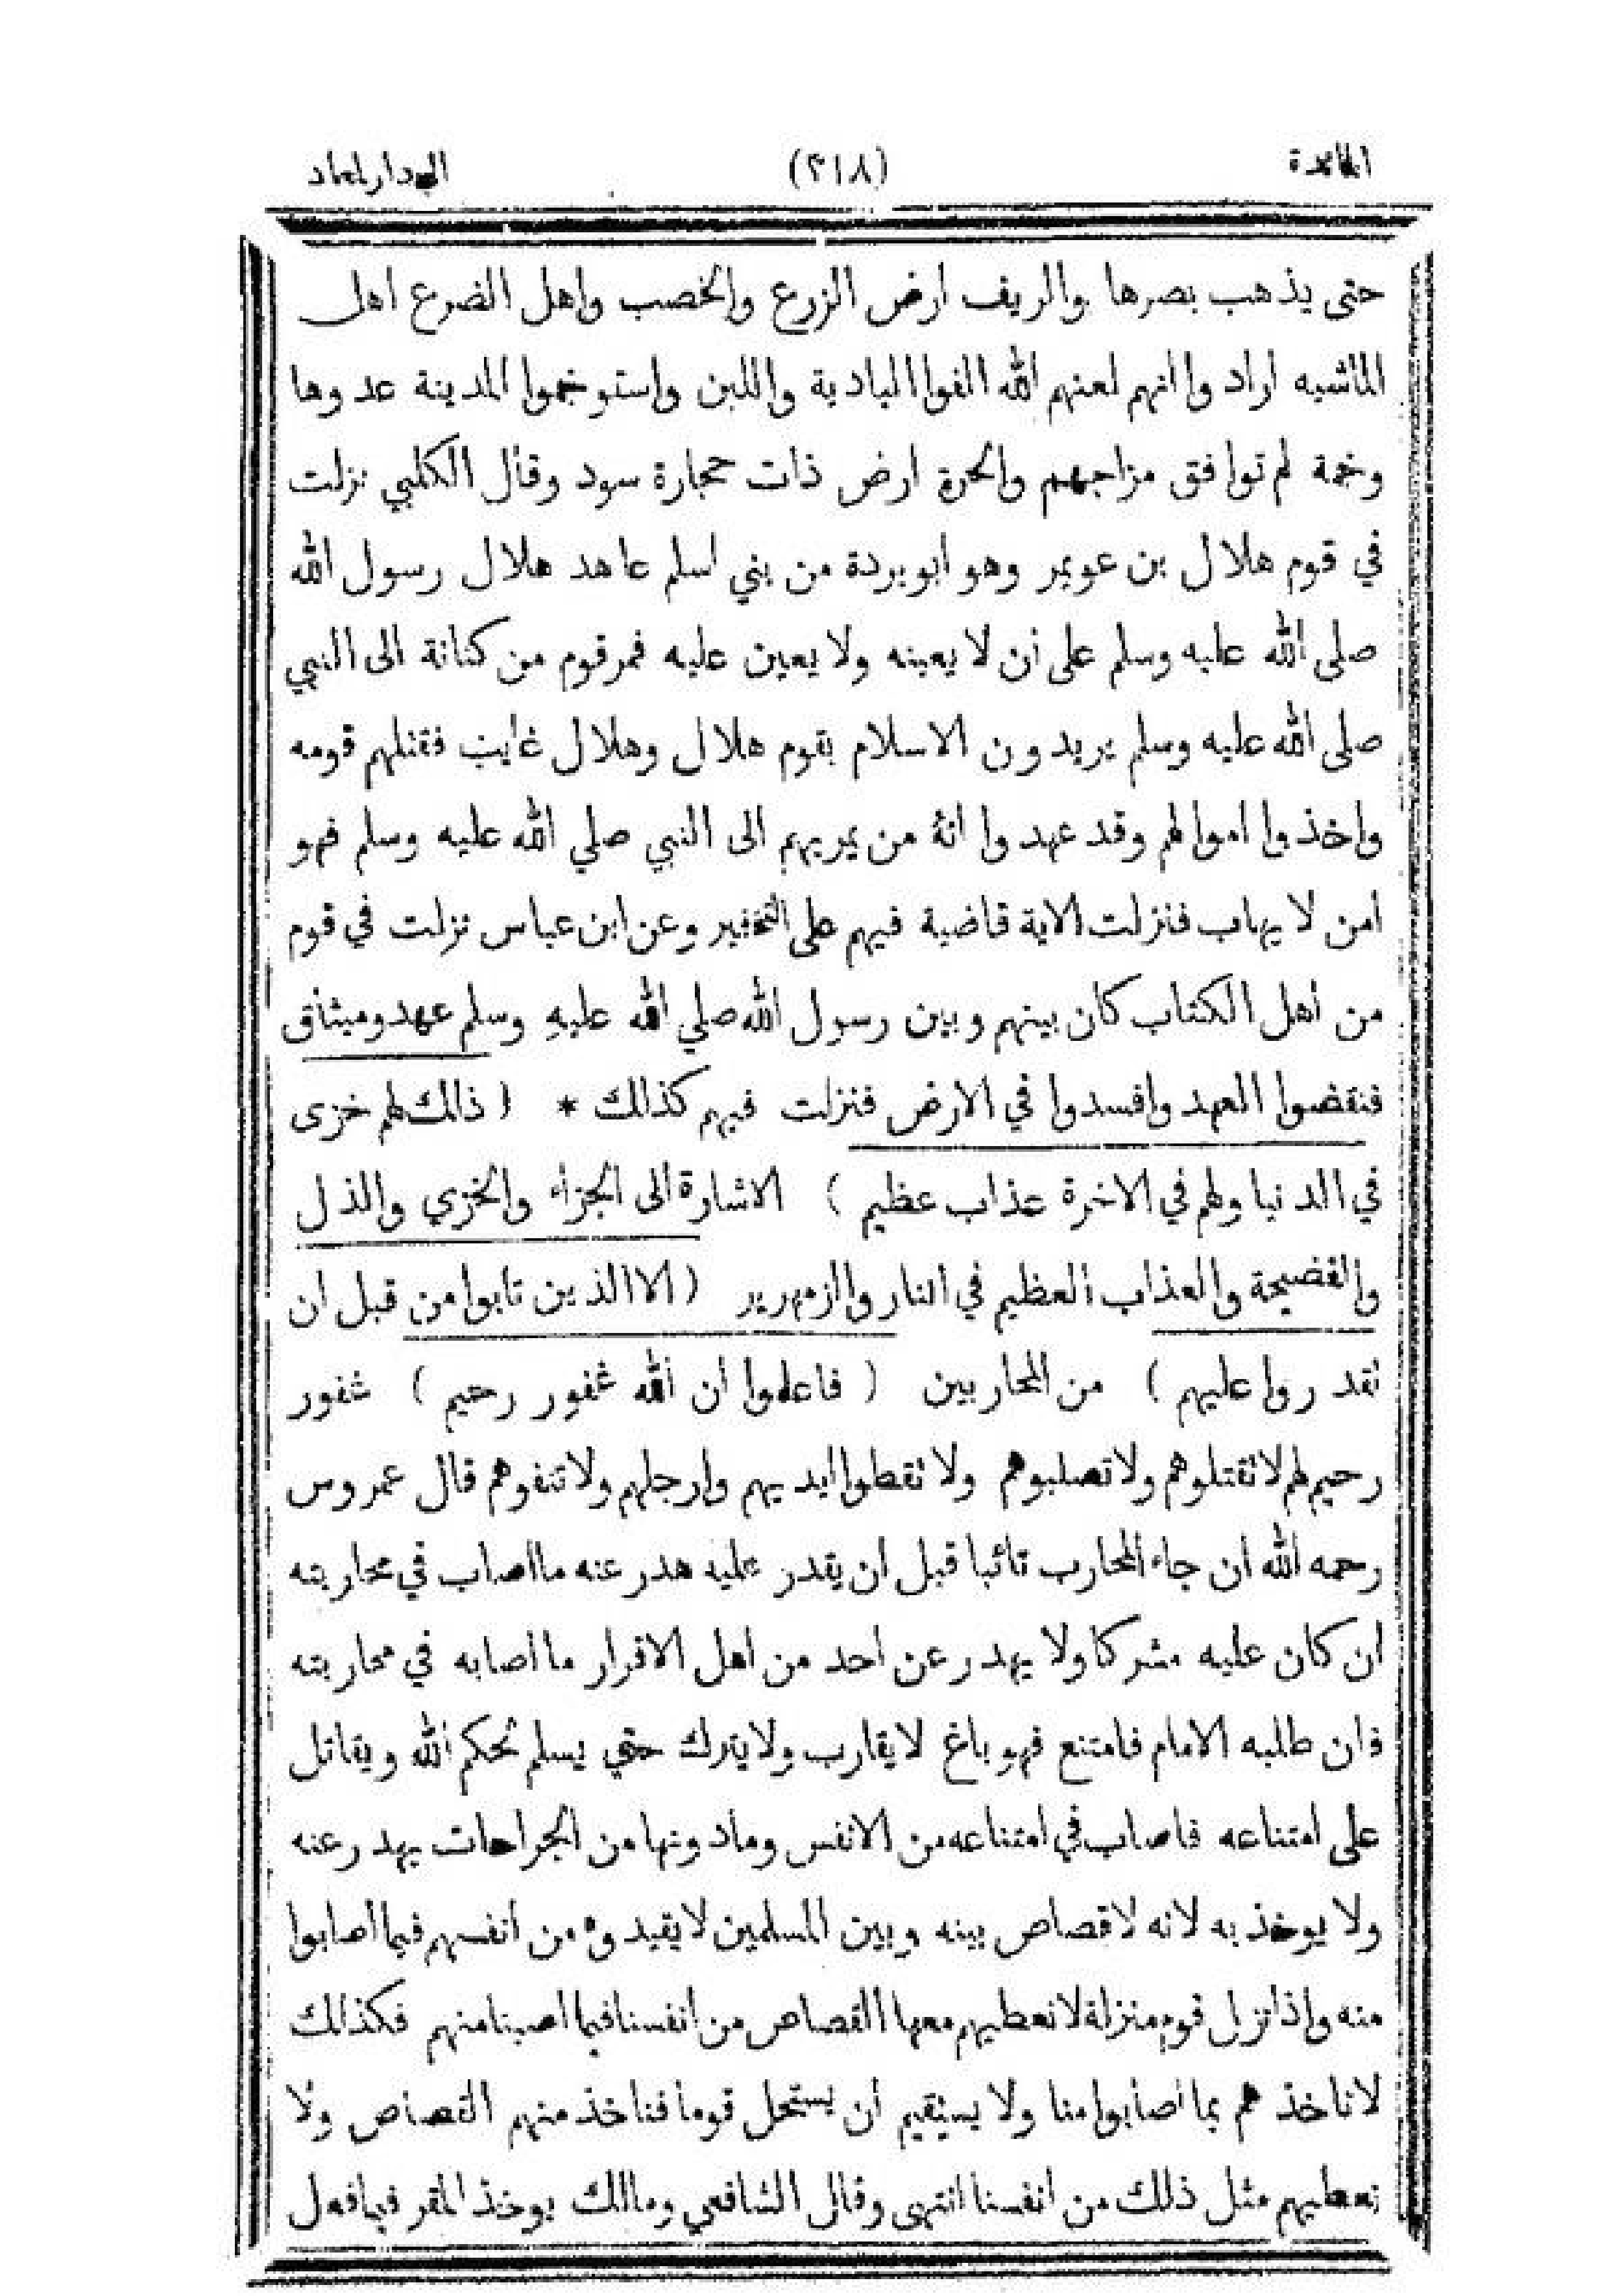 المائدة (٣١٨) الى دار المعاد
حتى يذهب بصرها والريف ارض الزرع والخصب واهل الضرع اهل
الماشيه اراد وا انهم لعنهم الله الفوا البادية واللبن واستوخموا المدينة عدوها
وخمة لم توافق مزاجهم والحرة ارض ذات حجارة سود وقال الكلبي نزلت
في قوم هلال بن عويمر وهو أبو بردة من بني اسلم عاهد هلال رسول الله
صلى الله عليه وسلم على أن لا يعينه ولا يعين عليه فمر قوم من كنانة الى النبي
صلى الله عليه وسلم يريدون الاسلام بقوم هلال وهلال غايب فقتلهم قومه
واخذوا اموالهم وقد عهدوا انهُ من يمر بهم الى النبي صلي الله عليه وسلم فهو
امن لا يهاب فنزلت الاية قاضية فيهم على التخيير وعن ابن عباس نزلت في قوم
من أهل الكتاب كان بينهم وبين رسول الله صلي الله عليهِ وسلم عهد وميثاق
فنقضوا العهد وافسدوا في الارض فنزلت فيهم كذالك * ( ذالك لهم خزى
في الدنيا ولهم في الاخرة عذاب عظيم ) الاشارة الى الجزاء والخزي والذل
والفضيحة والعذاب العظيم في النار والزمهرير ( الا الذين تابوا من قبل ان
تقدروا عليهم ) من المحاربين ( فاعلموا أن الله غفور رحيم ) غفور
رحيم لهم لا تقتلوهم ولا تصلبوهم ولا تقطعوا ايديهم وارجلهم ولا تنفوهم قال عمروس
رحمه الله أن جاء المحارب تائبا قبل ان يقدر عليه هدر عنه ما اصاب في محاربته
ان كان عليه مشركا ولا يهدر عن احد من اهل الاقرار ما اصابه في محاربته
فان طلبه الامام فامتنع فهو باغ لا يقارب ولا يترك حتي يسلم لحكم الله ويقاتل
على امتناعه فاصاب في امتناعه من الانفس ومادونها من الجراحات يهدر عنه
ولا يوخذ به لانه لا قصاص بينه وبين المسلمين لا يقيدوه من أنفسهم فيما اصابوا
منه واذا نزل قوم منزلة لا نعطيهم معها القصاص من انفسنا فيما اصبنا منهم فكذالك
لا ناخذهم بما اصابوا منا ولا يستقيم أن يستحل قوما فناخذ منهم القصاص ولا
نعطيهم مثل ذلك من انفسنا انتهى وقال الشافعي ومالك يوخذ المقر فيما فعل